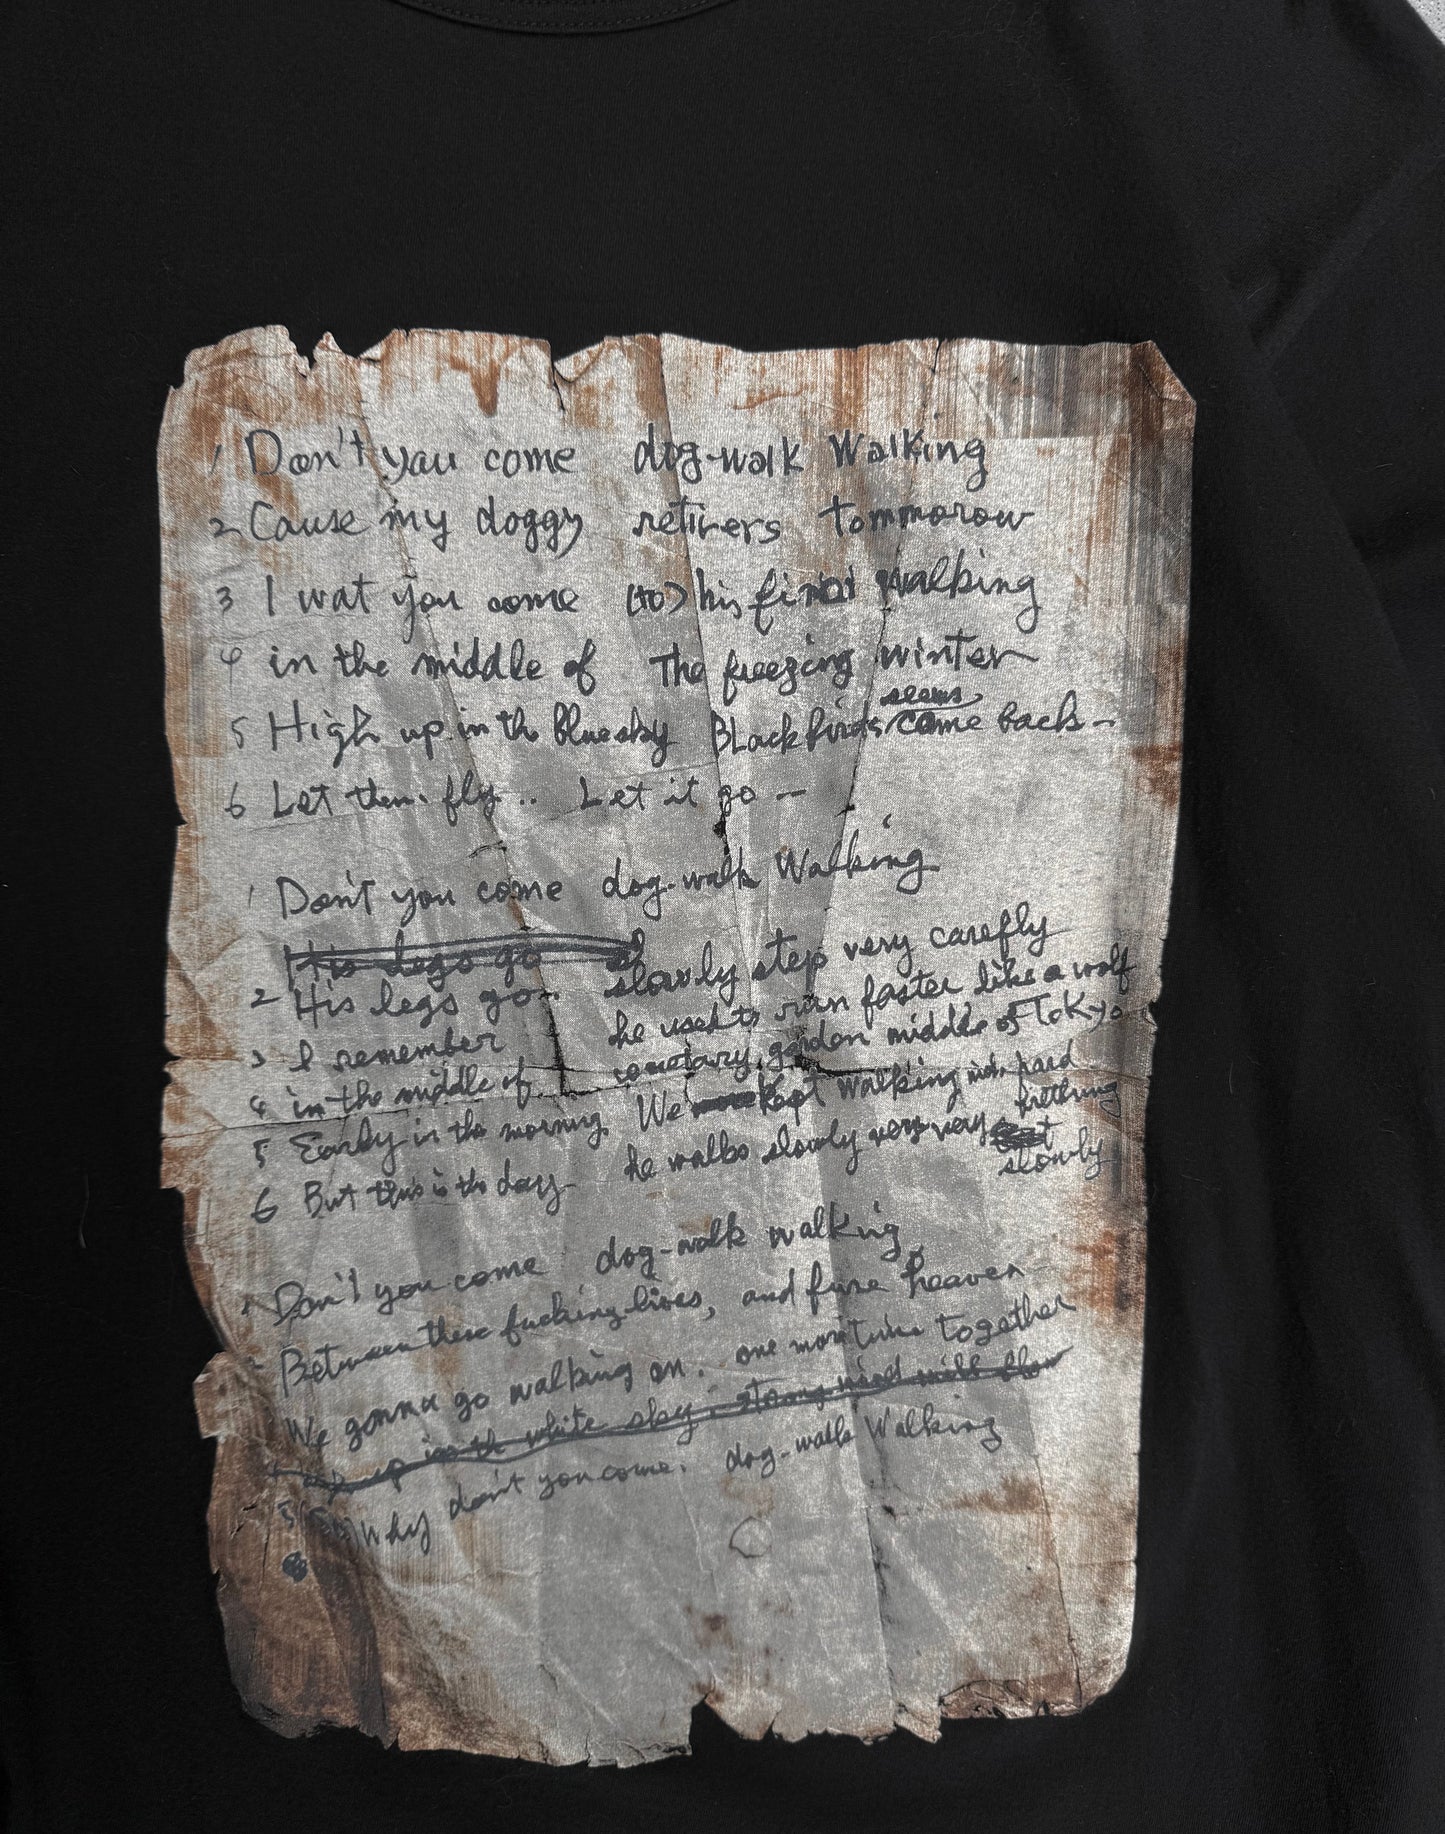 1 Don't you come dog-walk Walking
2 Cause my doggy retirers tommorow
3 I wat you come (to) his final walking
4 in the middle of The freezing winter
5 High up in the Blue sky Black birds seems come back -
6 Let them fly.. Let it go -
1 Don't you come dog-walk Walking
His legs go
2 His legs go.. slowly step very carefly
3 I remember he used to run faster like a wolf
4 in the middle of cemetary garden middle of Tokyo
5 Early in the morning We kept walking hard brething
6 But this is the day he walks slowly very very slowly
1 Don't you come dog-walk walking
Between these fucking lives, and heaven
We gonna go walking on. one more time together
up in the white sky strong wind will blow
5 Why don't you come. dog-walk Walking